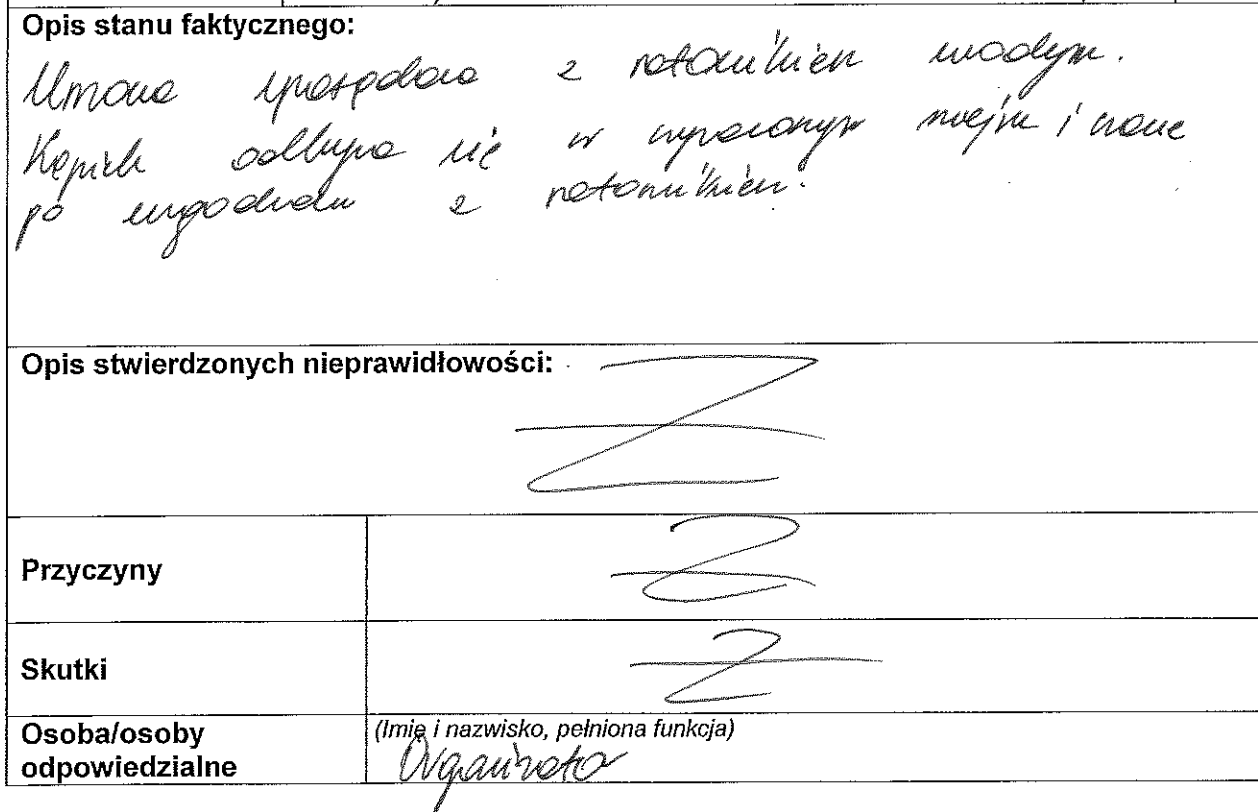 Opis stanu faktycznego:
Umowa sporządzona z ratownikiem wodnym.
Kąpiele odbywa się w wyznaczonym miejscu i czasie
po uzgodnieniu z ratownikiem.
Opis stwierdzonych nieprawidłowości:
Przyczyny
Skutki
Osoba/osoby odpowiedzialne
(Imię i nazwisko, pełniona funkcja)
Organizator